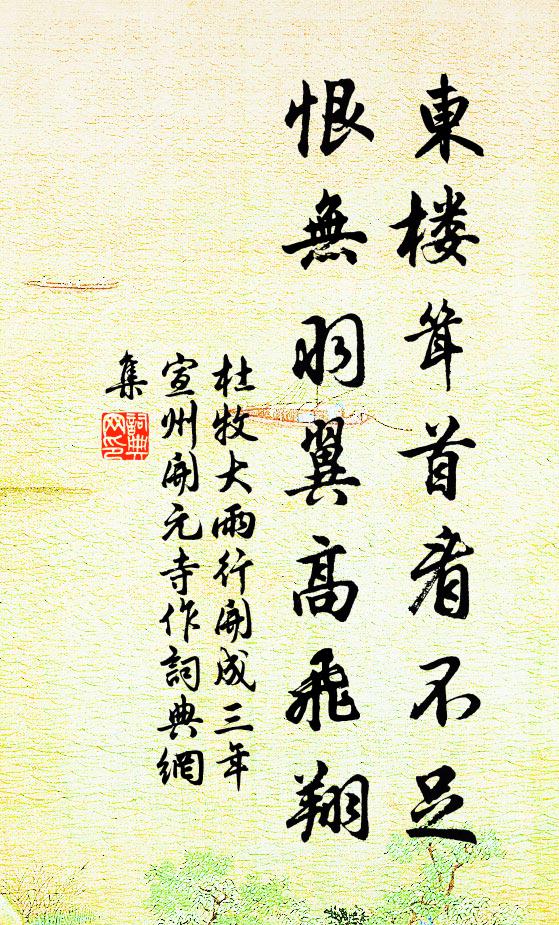 東楼耸首看不足
恨無羽翼高飛翔
杜牧大雨行開成三年
宣州開元寺作詞典網
集
詞典
网印